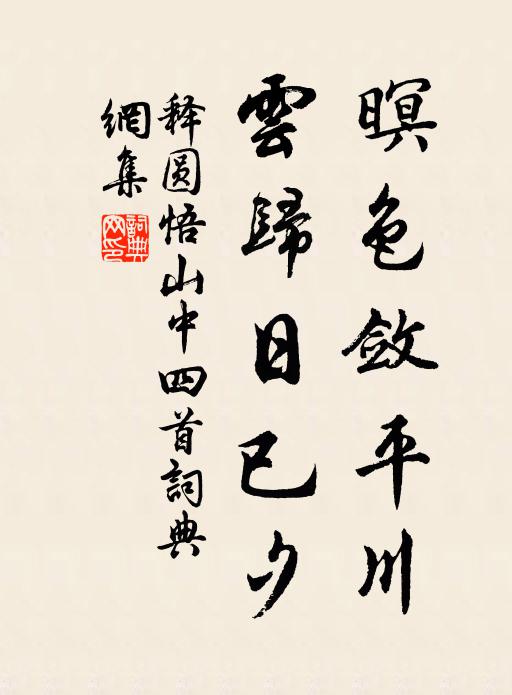 暝色斂平川
雲歸日已夕
释圆悟山中四首詞典
網集
詞典網印